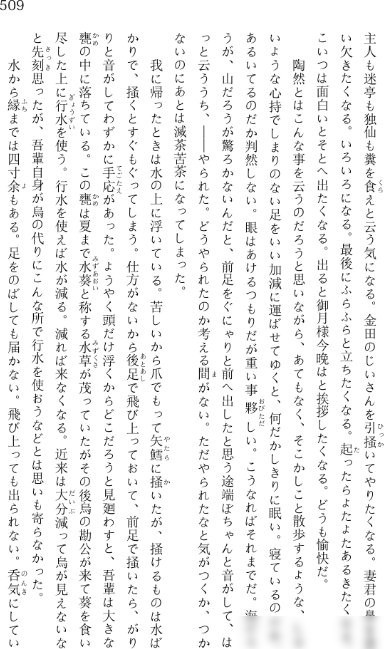 509
主人も迷亭も独仙も糞を食えと云う気になる。金田のじいさんを引掻いてやりたくなる。妻君の
い欠きたくなる。いろいろになる。最後にふらふらと立ちたくなる。起ったらよたよたあるきたく
こいつは面白いとそとへ出たくなる。出ると御月様今晩はと挨拶したくなる。どうも愉快だ。
陶然とはこんな事を云うのだろうと思いながら、あてもなく、そこかしこと散歩するような、
いような心持でしまりのない足をいい加減に運ばせてゆくと、何だかしきりに眠い。寝ているの
あるいてるのだか判然しない。眼はあけるつもりだが重い事夥しい。こうなればそれまでだ。海
うが、山だろうが驚ろかないんだと、前足をぐにゃりと前へ出したと思う途端ぼちゃんと音がして、は
っと云ううち、――やられた。どうやられたのか考える間がない。ただやられたなと気がつくか、つか
ないのにあとは滅茶苦茶になってしまった。
我に帰ったときは水の上に浮いている。苦しいから爪でもって矢鱈に掻いたが、掻けるものは水ば
かりで、掻くとすぐもぐってしまう。仕方がないから後足で飛び上っておいて、前足で掻いたら、がり
りと音がしてわずかに手応があった。ようやく頭だけ浮くからどこだろうと見廻わすと、吾輩は大きな
甕の中に落ちている。この甕は夏まで水葵と称する水草が茂っていたがその後烏の勘公が来て葵を食い
尽した上に行水を使う。行水を使えば水が減る。減れば来なくなる。近来は大分減って烏が見えないな
と先刻思ったが、吾輩自身が烏の代りにこんな所で行水を使おうなどとは思いも寄らなかった。
水から縁までは四寸余もある。足をのばしても届かない。飛び上っても出られない。呑気にしてい